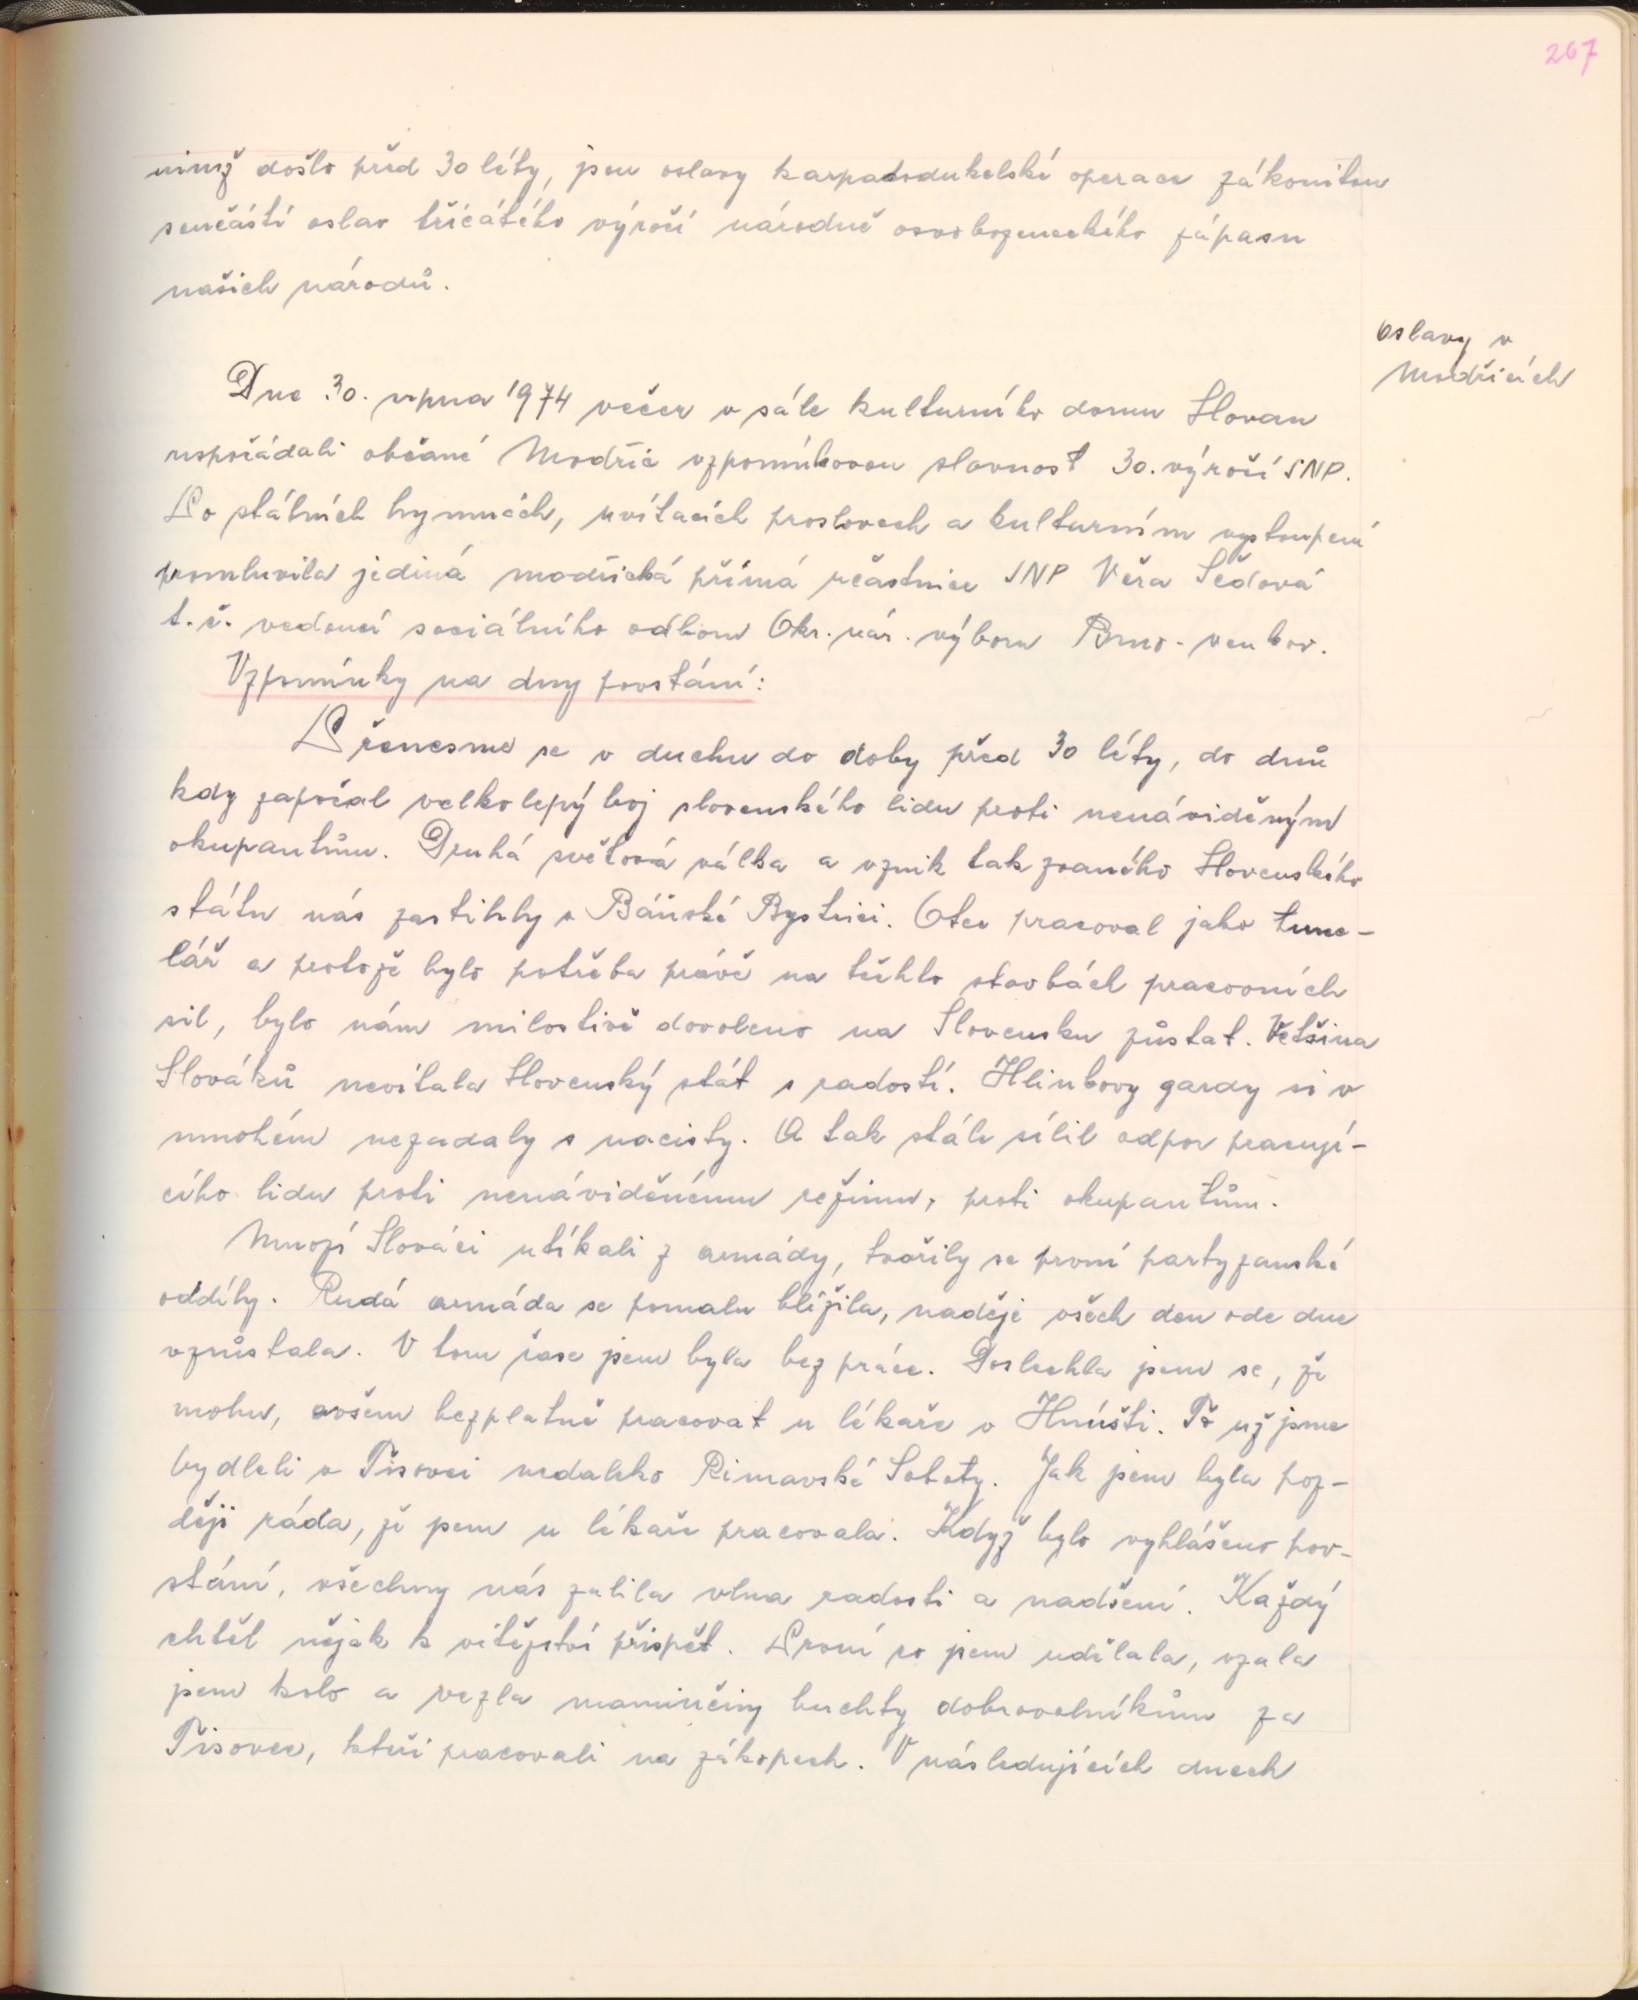 267
nimž došlo před 30 léty, jsou oslavy karpatodukelské operace zákonitou
součástí oslav třicátého výročí národně osvobozeneckého zápasu
našich národů.
Oslavy v
Modřicích
Dne 30. srpna 1974 večer v sále kulturního domu Slovan
uspořádali občané Modřic vzpomínkovou slavnost 30. výročí SNP.
Po státních hymnách, uvítacích proslovech a kulturním vystoupení
promluvila jediná modřická přímá účastnice SNP Věra Šedová
t.č. vedoucí sociálního odboru Okr. nár. výboru Brno-venkov.
Vzpomínky na dny povstání:
Přenesme se v duchu do doby před 30 léty, do dnů
kdy započal velkolepý boj slovenského lidu proti nenáviděným
okupantům. Druhá světová válka a vznik tak zvaného Slovenského
státu nás zastihly v Báňské Bystrici. Otec pracoval jako tune-
lář a protože bylo potřeba právě na těchto stavbách pracovních
sil, bylo nám milostivě dovoleno na Slovensku zůstat. Většina
Slováků nevítala Slovenský stát s radostí. Hlinkovy gardy si v
mnohém nezadaly s nacisty. A tak stále sílil odpor pracují-
cího lidu proti nenáviděnému režimu, proti okupantům.
Mnozí Slováci utíkali z armády, tvořily se první partyzanské
oddíly. Rudá armáda se pomalu blížila, naděje všech den ode dne
vzrůstala. V tom čase jsem byla bez práce. Doslechla jsem se, že
mohu, ovšem bezplatně pracovat u lékaře v Hnúšti. To už jsme
bydleli v Tisovci nedaleko Rimavské Soboty. Jak jsem byla poz-
ději ráda, že jsem u lékaře pracovala. Když bylo vyhlášeno pov-
stání, všechny nás zalila vlna radosti a nadšení. Každý
chtěl nějak k vítězství přispět. První co jsem udělala, vzala
jsem kolo a vezla maminčiny buchty dobrovolníkům za
Tisovec, kteří pracovali na zákopech. V následujících dnech